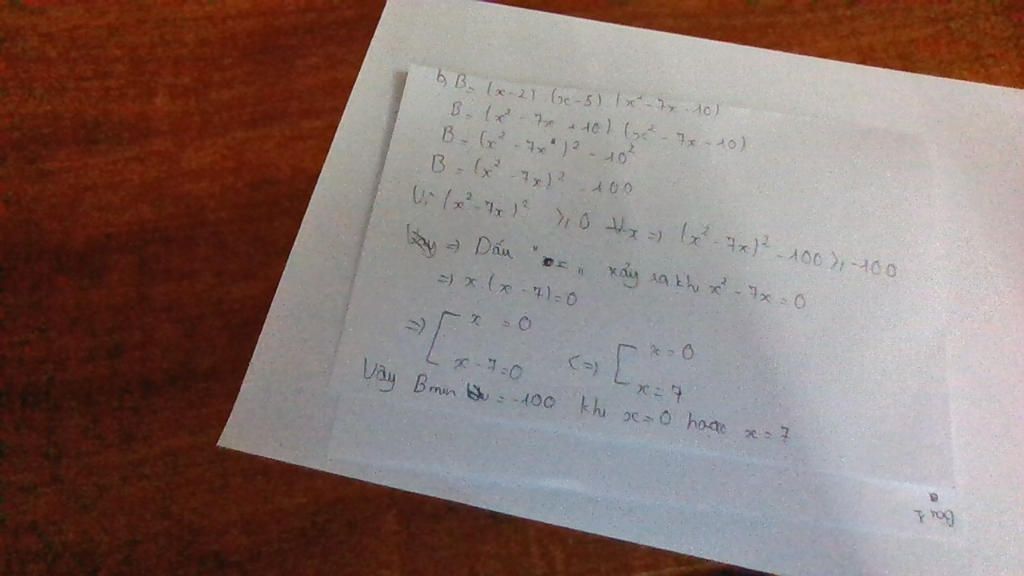 b, B = (x-2) (x-5) (x² - 7x - 10)
B = (x² - 7x + 10) (x² - 7x - 10)
B = (x² - 7x)² - 10²
B = (x² - 7x)² - 100
Vì (x² - 7x)² ≥ 0 ∀x => (x² - 7x)² - 100 ≥ -100
=> Dấu "=" xảy ra khi x² - 7x = 0
=> x. (x - 7) = 0
=> [ x = 0 <=> [ x = 0
x - 7 = 0 x = 7
Vậy Bmin = -100 khi x = 0 hoặc x = 7
Bài 2
a